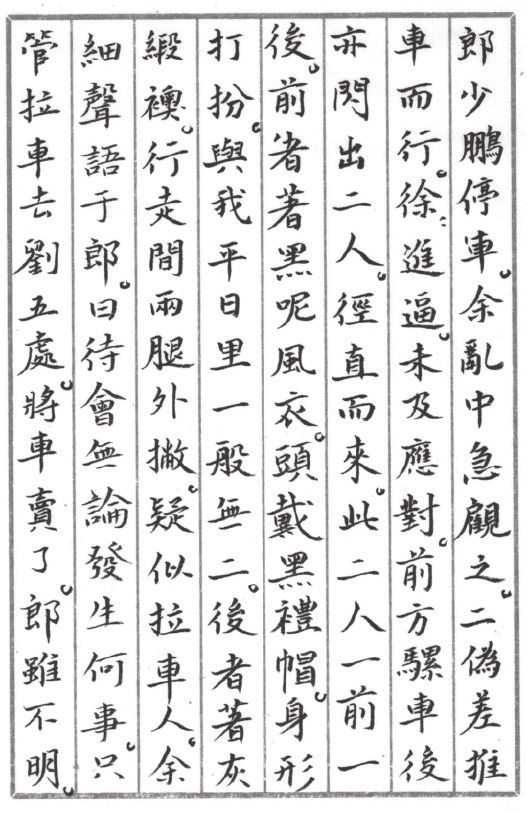 郎少鵬停車。余亂中急顧之。二偽差推
車而行。徐々進逼。未及應對。前方騾車後
亦閃出二人。徑直而來。此二人一前一
後。前者著黑呢風衣。頭戴黑禮帽。身形
打扮。與我平日里一般無二。後者著灰
緞襖。行走間兩腿外撇。疑似拉車人。余
細聲語于郎。曰待會無論發生何事。只
管拉車去劉五處。將車賣了。郎雖不明。